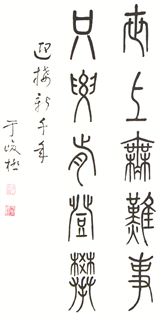 世上無難事
只要肯登攀
迎接新千年